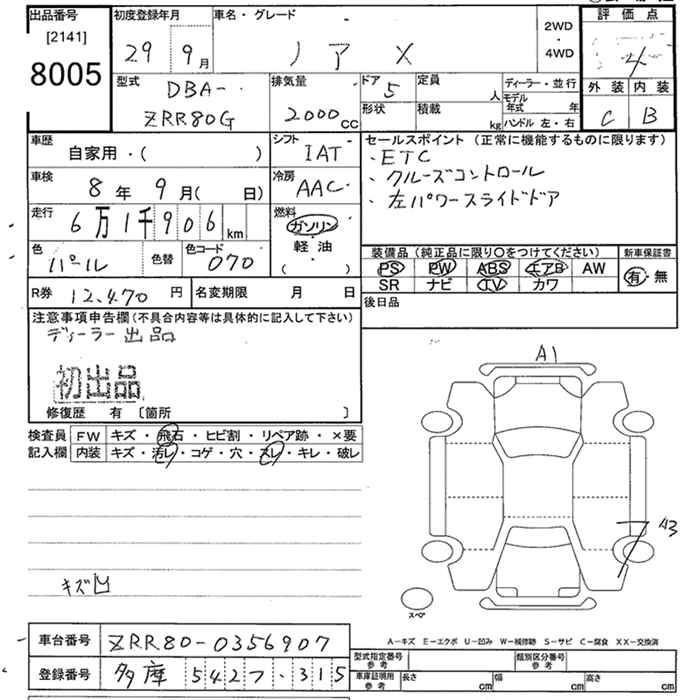 出品番号 初度登録年月 車名・グレード 2WD・4WD 評価点
[2141]
8005 29 9月 ノア X 4
型式 DBA- ZRR80G 排気量 2000cc ドア 5 定員 人 ディーラー・並行 外装 C 内装 B
形状 積載 kg モデル年式 年
ハンドル 左・右
車歴 自家用・( ) シフト IAT セールスポイント (正常に機能するものに限ります)
・ETC
車検 8年9月( 日) 冷房 AAC ・クルーズコントロール
・左パワースライドドア
走行 6万1千906km 燃料 ガソリン・軽油 ( )
色 パール 色替 色コード 070 装備品 (純正品に限り○をつけてください) 新車保証書
PS PW ABS エアB AW 有・無
SR ナビ TV カワ
R券 12,470円 名変期限 月 日 後日品
注意事項申告欄(不具合内容等は具体的に記入して下さい)
ディーラー出品
初出品
修復歴 有 〔箇所 〕
検査員 FW キズ・飛石・ヒビ割・リペア跡・×要
記入欄 内装 キズ・汚レ・コゲ・穴・スレ・キレ・破レ
A1
A3
キズ凹
スペア
A-キズ E-エクボ U-凹み W-補修跡 S-サビ C-腐食 XX-交換済
車台番号 ZRR80-0356907 型式指定番号 参考 類別区分番号 参考
登録番号 多摩 542 315 車庫証明用 参考 長さ cm 幅 cm 高さ cm